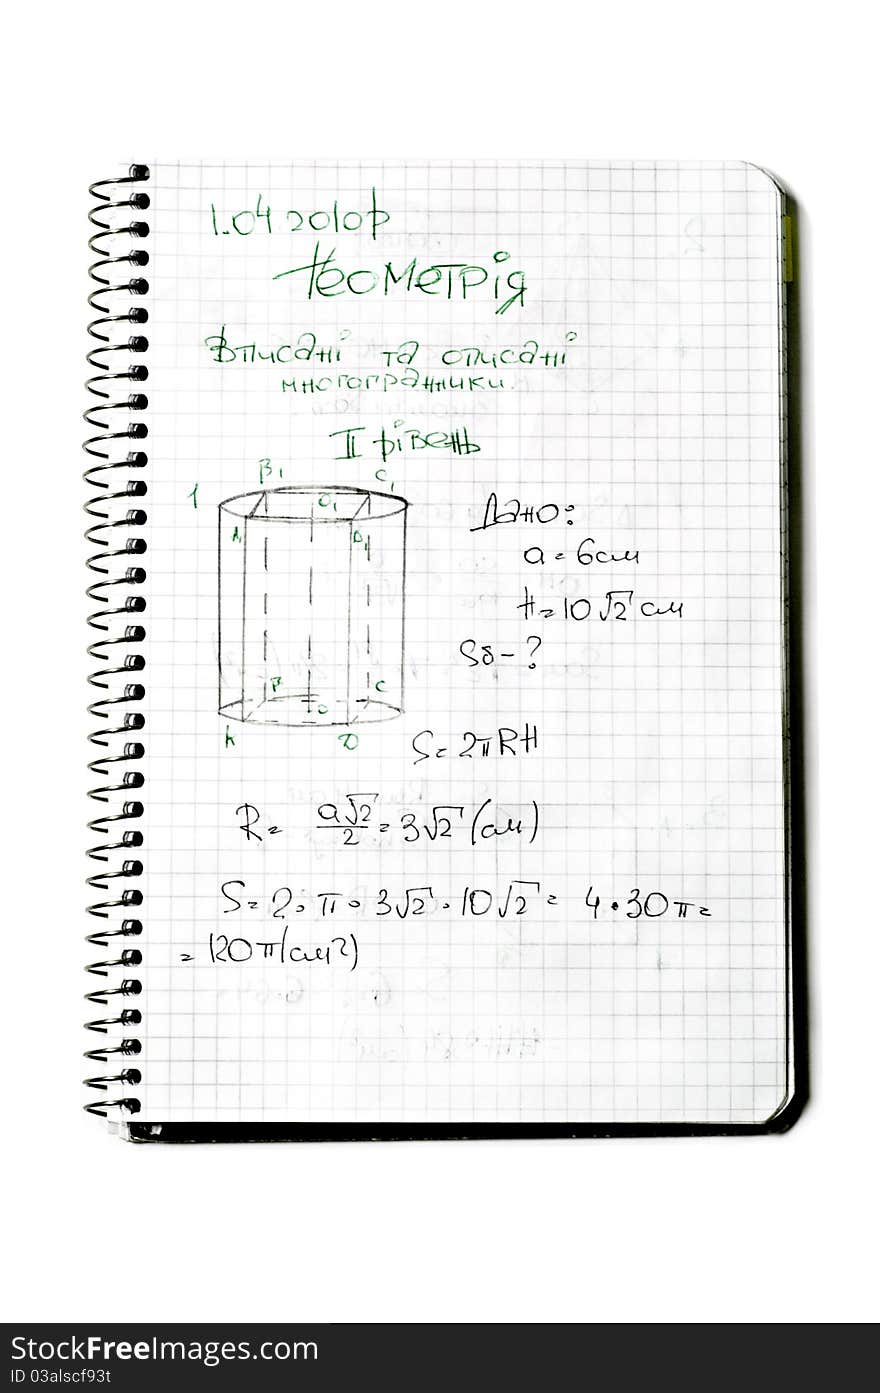 1.04 2010р
Геометрія
Вписані та описані
многогранники.
II рівень
1
B₁ C₁
O₁
A₁ D₁
Дано:
a = 6см
H = 10√2 см
Sб - ?
B C
O
A D
S = 2πRH
R = a√2/2 = 3√2 (см)
S = 2 · π · 3√2 · 10√2 = 4 · 30π =
= 120π(см²)
StockFreeImages.com
ID 03alscf93t